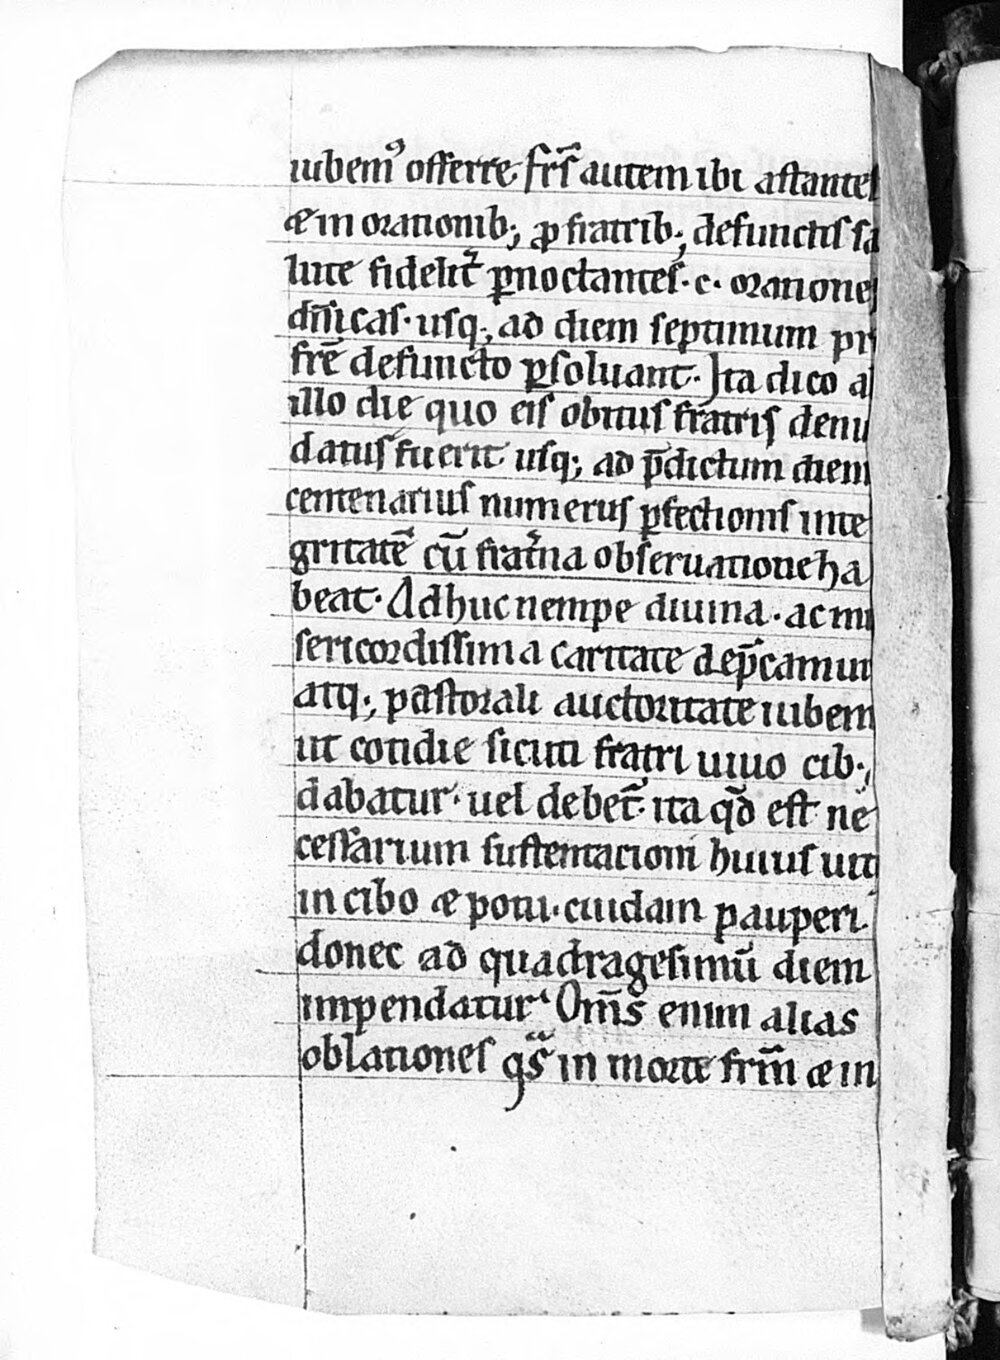 iubemꝰ offerre· fr̄s autem ibi astantes
æ in orationib; ꝓ fratrib; defunctis sa
lute fidelit̄ ꝑnoctantes· c· orationes
dn̄icas· usq; ad diem septimum pr
fr̄e defuncto ꝑsoluant· Ita dico a
illo die quo eis obitus fratris denu
datus fuerit usq; ad p̄dictum diem
centenarius numerus ꝑfectionis inte
gritatē cū frat̄na obseruatione ha
beat· Adhuc nempe diuina· ac mi
sericordissima caritate dep̄camur
atq; pastorali auctoritate iubem
ut cotidie sicuti fratri uiuo cib;
dabatur· uel debet̄· ita qd̄ est ne
cessarium sustentacioni huius uit
in cibo æ potu· cuidam pauperi·
donec ad quadragesimū diem
impendatur· Om̄s enim alias
oblationes qs̄ in morte fr̄m æ in